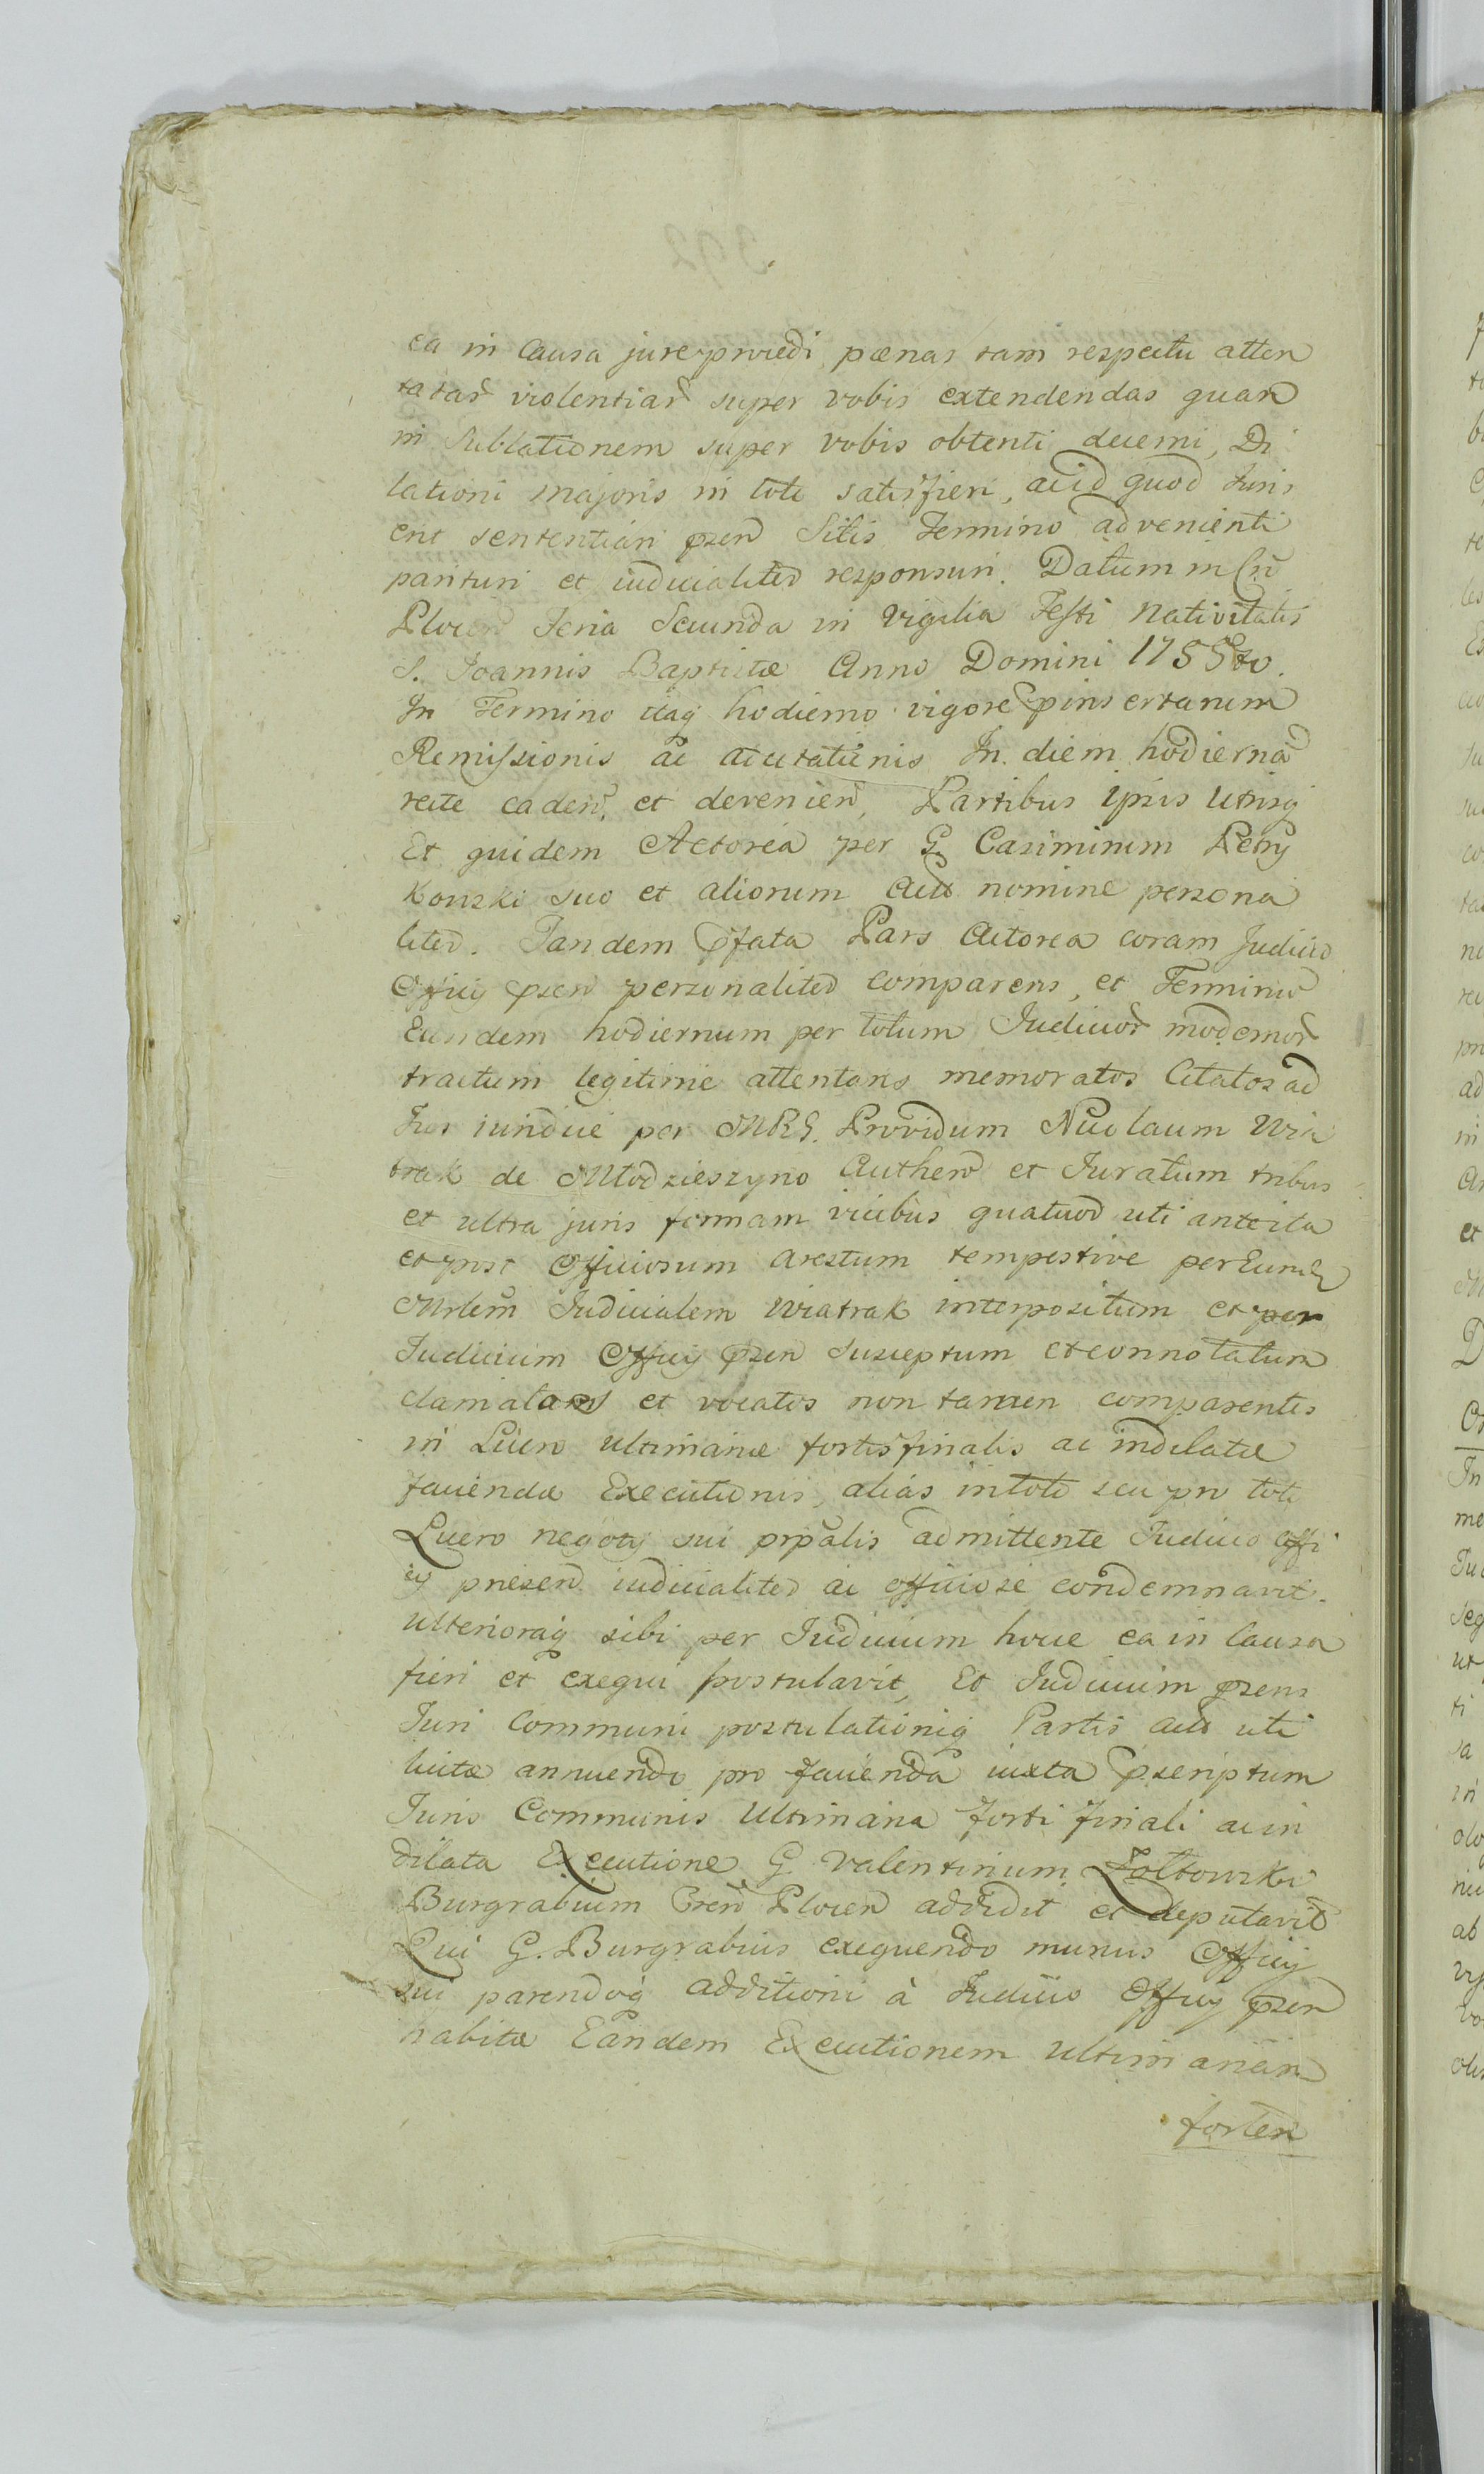 ea in Causa jure provedi, pœnas tam respectu atten
tatar violentiar super vobis extendendas quam
in Sublationem super vobis obtenti decerni, Di
lationi majoris in toto satisfieri, acid quod Juris
erit sententiam pzen Sitis Termino advenienti
parituri et iudicialiter responsuri. Datum in Crī
Plocen Feria Secunda in Vigilia Festi Nativitatis
S. Joannis Baptistæ Anno Domini 1755to.
In Termino itaq hodierno vigore pinsertarum
Remissionis ac Citationis In diem hodierna
recte caden, et devenien, Partibus ipsis Utrisq
Et quidem Actorea per G. Casimirum Petry
kowski suo et aliorum Act nomine persona
liter. Tandem pfata Pars Actorea coram Judicio
Officij pzen personaliter comparens, et Terminu
Eundem hodiernum per totum Judicior modernor
tractum legitime attentans memoratos Citatos ad
Jus iundice per MRG. Providum Nicolaum Wia
trak de Młodzieszyno Authen et Juratum tribus
et ultra juris formam vicibus quatuor uti anteita
et post Officiosum arestum tempestive per Eund
Mrlem Judicialem Wiatrak interpositum et per
Judicium Officij pzen susceptum et connotatum
clamatos et vocatos non tamen comparentes
in Lucro ultimariæ fortis finalis ac indilatæ
faciendæ Executionis, alias in toto seu pro toto
Lucro negotij sui prpalis admittente Judicio Offi
cij præsen iudicialiter ac officiose condemnavit.
ulterioraq sibi per Judicium hocce ea in Causa
fieri et exequi postulavit, Et Judicium pzens
Juri Communi postulationiq Partis Act uti
licitæ annuendo pro facienda iuxta pzeriptum
Juris Communis Ultimaria forti finali ac in
dilata Executione G. Valentinum Zoltowski
Burgrabium Cren Plocen addidit et deputavit
Qui G. Burgrabius exequendo munus Officij
sui parendoq additioni à Judicio Officij pzen
habitæ Eandem Executionem ultimariam
fortem